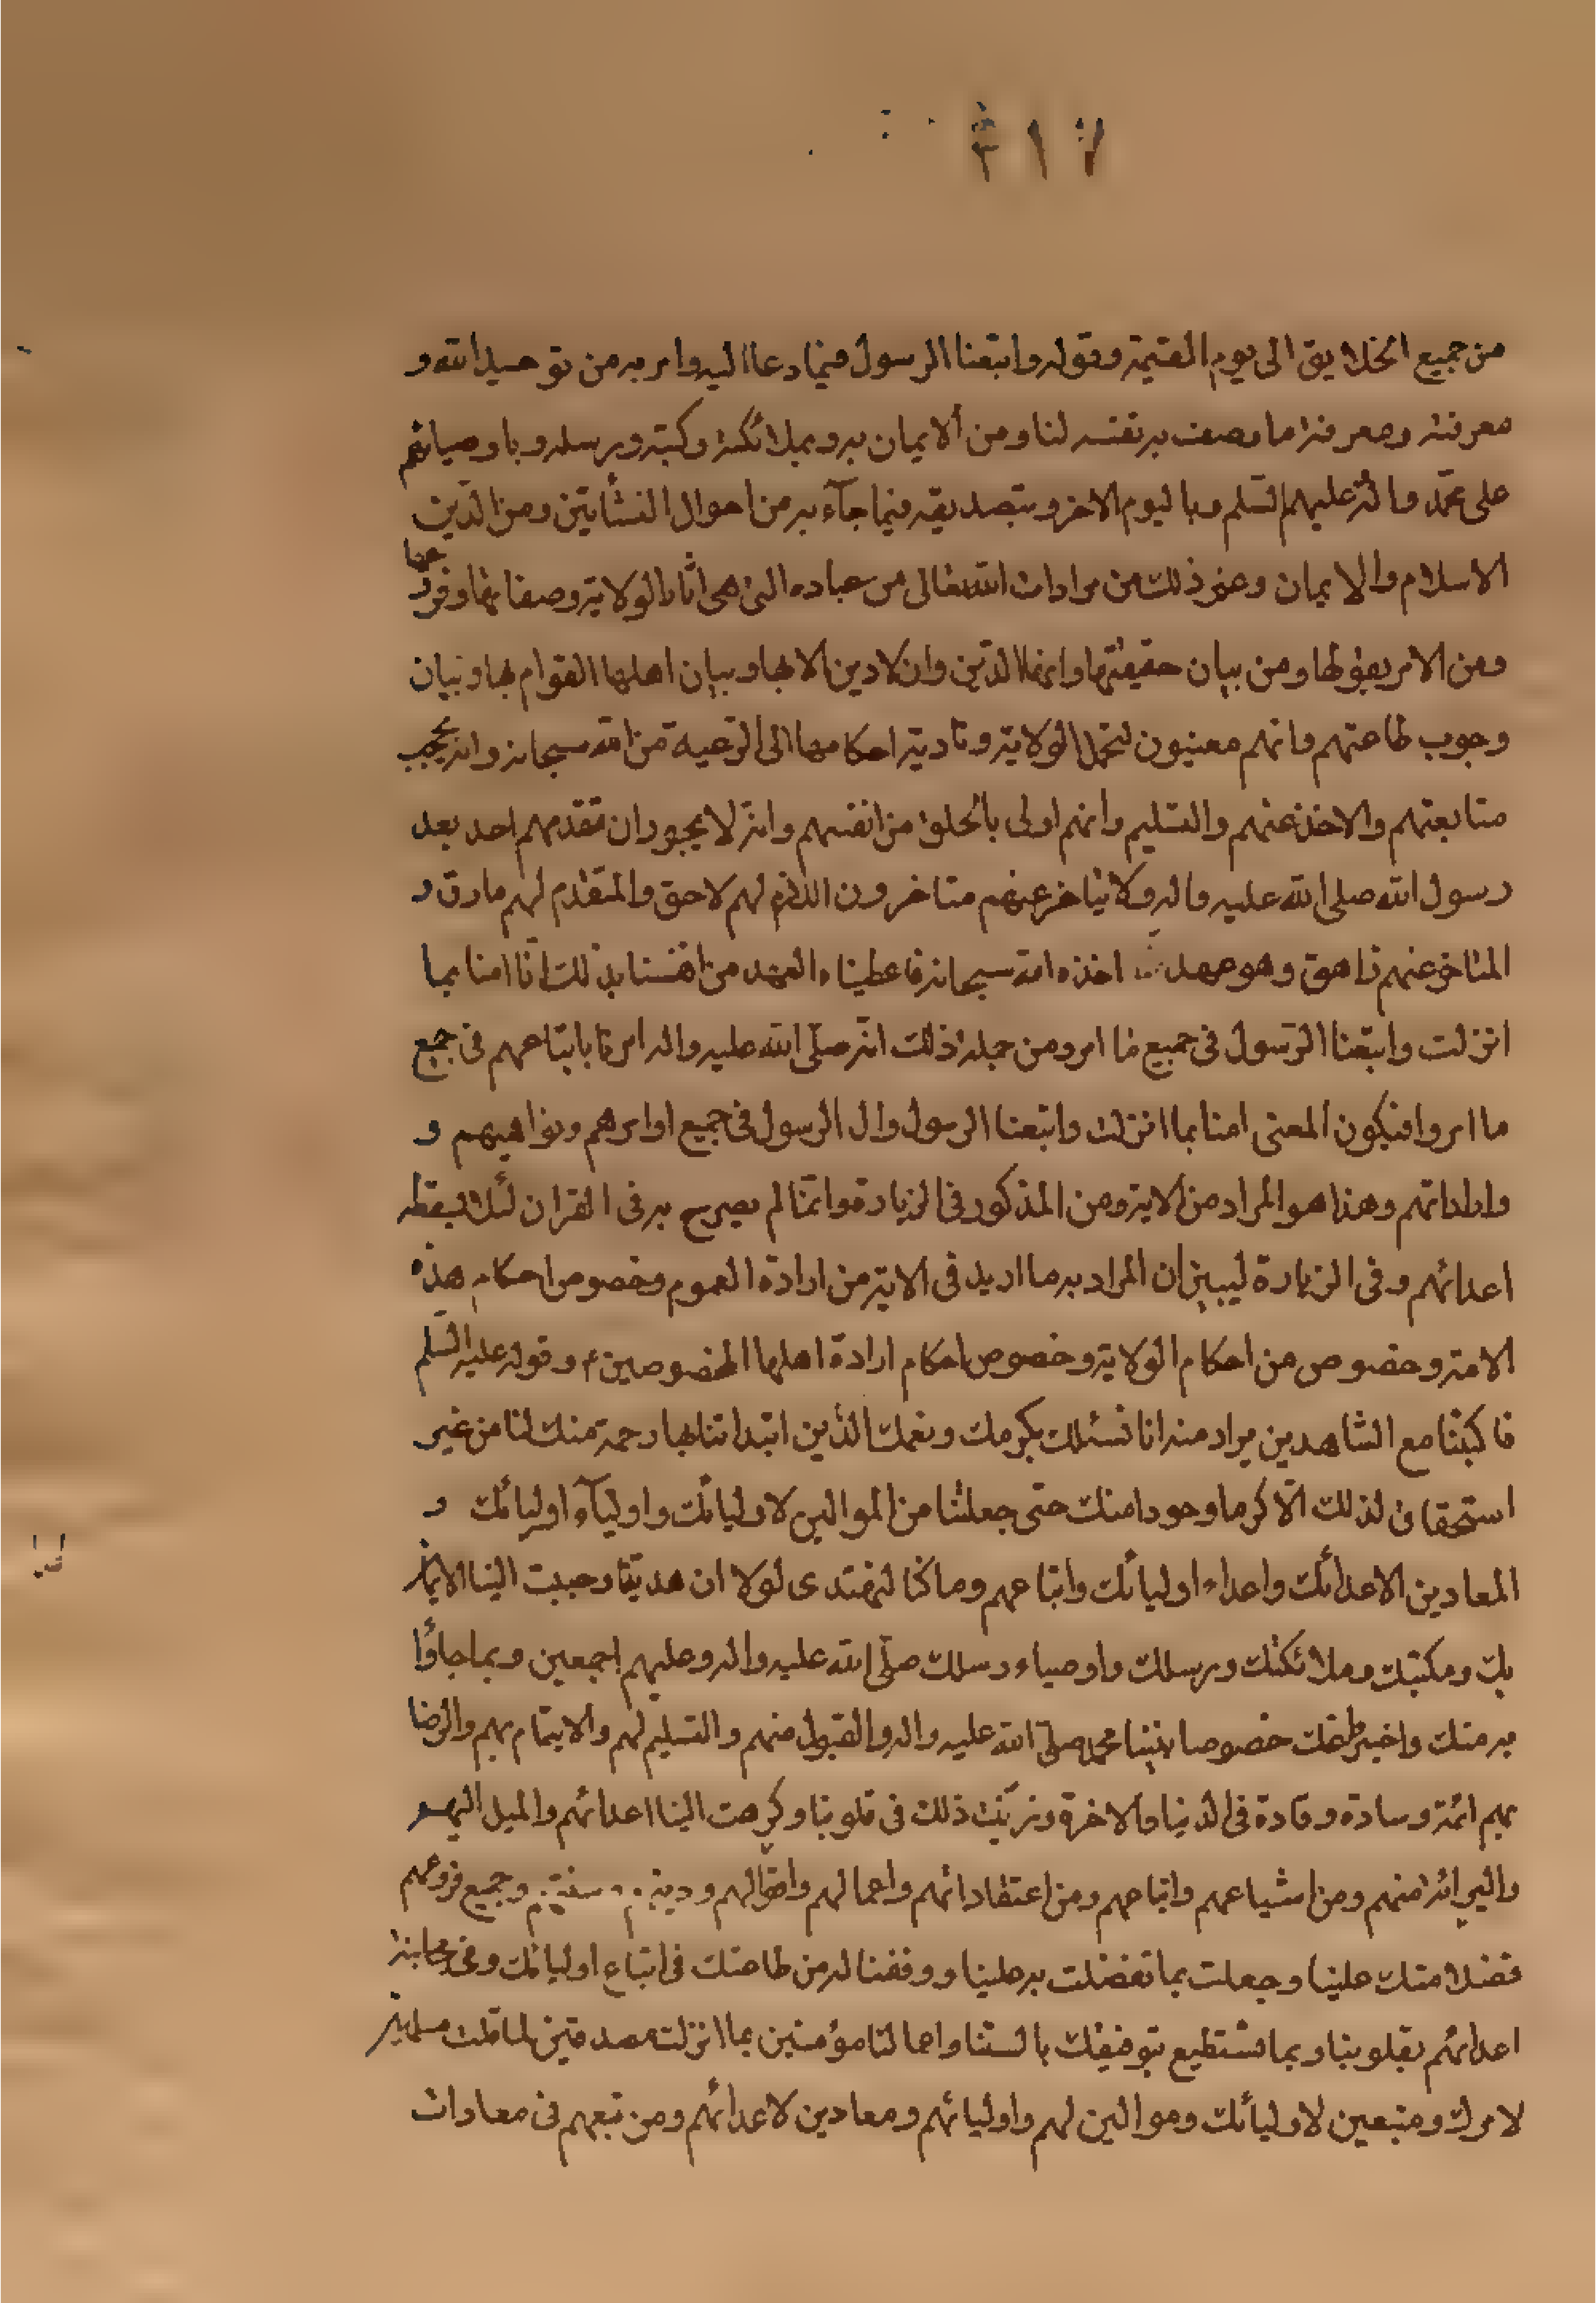 من جميع الخلايق الى يوم القيمة وقوله واتبعنا الرسول فيما دعا اليه وامر به من توحيد الله و
معرفته ومعرفة ما وصف به نفسه لنا ومن الايمان به وبملائكته وكتبه وبرسله وباوصيائهم
على محمد واله وعليهم السلم وباليوم الاخر وبتصديقه فيما جآء به من احوال النشأتين ومن الدين
الاسلام والايمان وغير ذلك من مرادات الله تعالى من عباده التى هى اثار الولاية وصفاتها وفروعها
ومن الامر بقبولها ومن بيان حقيقتها وانها الدين وان لا دين الا بها وبيان اهلها القوام بها وبيان
وجوب طاعتهم وانهم معينون لتحمل الولاية وتادية احكامها الى الرعية من الله سبحانه وانه يجب
متابعتهم والاخذ عنهم والتسليم وانهم اولى بالخلق من انفسهم وانه لا يجوز ان يتقدمهم احد بعد
رسول الله صلى الله عليه واله ولا يتاخر عنهم متاخر ون اللازم لهم لاحق والمتقدم لهم مارق و
المتاخر عنهم زاهق وهو عهد اخذه الله سبحانه فاعطيناه العهد من انفسنا بذلك انا امنا بما
انزلت واتبعنا الرسول فى جميع ما امر ومن جملة ذلك انه صلى الله عليه واله امرنا باتباعهم فى جميع
ما امروا فيكون المعنى امنا بما انزلت واتبعنا الرسول وال الرسول فى جميع اوامرهم ونواهيهم و
واراداتهم وهذا هو المراد من الاية ومن المذكور فى الزيارة وانما لم يصرح به فى القران لئلا يسقطه
اعدائهم وفى الزيارة ليبين ان المراد به ما اريد فى الاية من ارادة العموم وخصوص احكام هذه
الامة وخصوص من احكام الولاية وخصوص احكام ارادة اهلها المخصوصين ع وقوله عليه السلم
فاكتبنا مع الشاهدين يراد منه انا نسئلك بكرمك ونعمك الذين ابتداتنا بها رحمة منك لنا من غير
استحقاق لذلك الا كرما وجودا منك حتى جعلتنا من الموالين لاوليائك واوليآء اوليائك و
المعادين الاعدائك واعداء اوليائك واتباعهم وما كنا لنهتدى لولا ان هديتنا وحببت الينا الايمان
بك وبكتبك وملائكتك وبرسلك واوصياء رسلك صلى الله عليه واله وعليهم اجمعين وبما جاؤا
به منك واخبر خصوصا نبينا محمد صلى الله عليه واله والقبول منهم والتسليم لهم والايتمام بهم والرضا
بهم ائمة وسادة وقادة فى الدنيا والاخرة وزينت ذلك فى قلوبنا وكرهت الينا اعدائهم والميل اليهم
والبرائة منهم ومن اشياعهم واتباعهم ومن اعتقاداتهم واعمالهم واقوالهم ودينهم وسنتهم وجميع فروعهم
فضلا منك علينا وجعلت بما تفضلت به علينا ووفقتنا له من طاعتك فى اتباع اوليائك وفى مجانبة
اعدائهم بقلوبنا وبما نستطيع بتوفيقك بالسنتنا واعمالنا مؤمنين بما انزلت مصدقين لما قلت مسلمين
لامرك ومتبعين لاوليائك وموالين لهم واوليائهم ومعادين لاعدائهم ومن تبعهم فى معادات